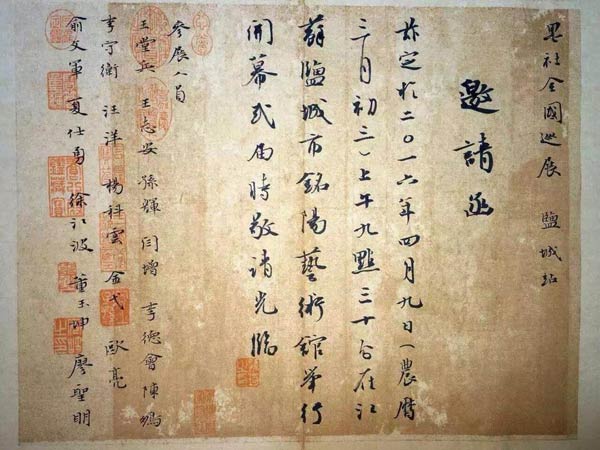 黑社全國巡展 鹽城站
邀請函
茲定於二〇一六年四月九日（農曆
三月初三）上午九點三十分在江
蘇鹽城市銘陽藝術館舉行
開幕式屆時敬請光臨
參展人員
王堂兵 王志安 孫輝 閆增 李德會 陳鳴
李守銜 汪洋 楊科雲 金戈 歐亮
俞文軍 夏仕勇 徐江波 董玉坤 廖聖明